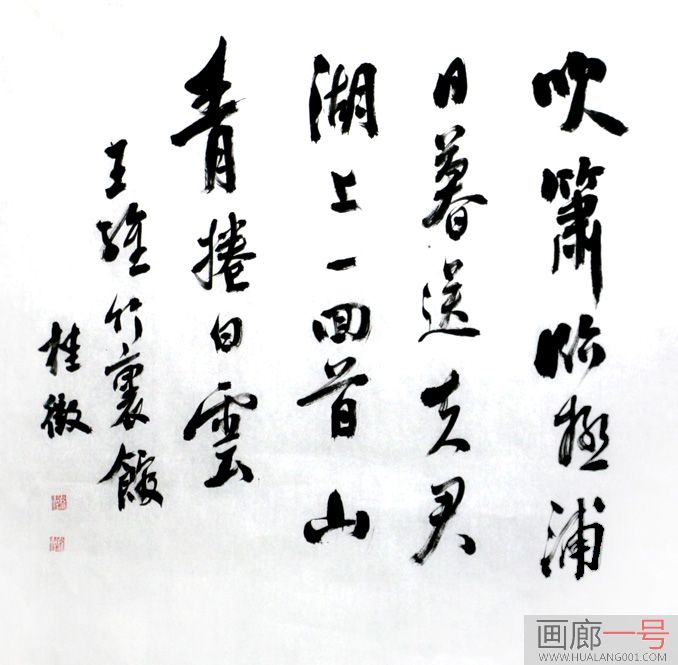 吹簫臨極浦
日暮送夫君
湖上一回首山
青捲白雲
王維竹裏館
桂
画廊一号
WWW.HUALANG001.COM